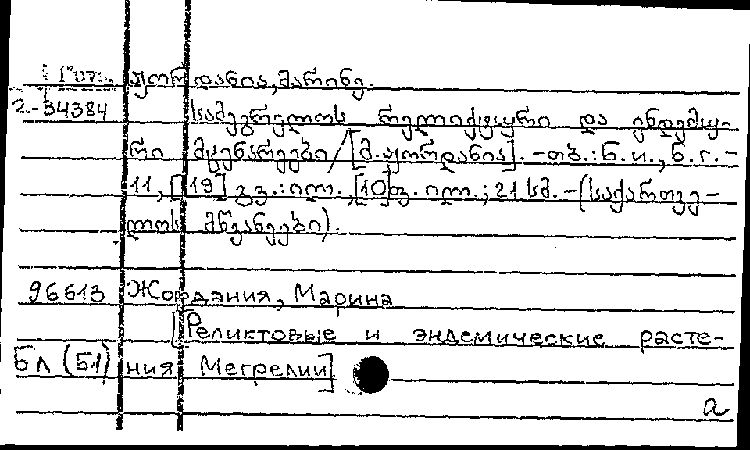 ჟორდანია, მარინე.
2-34384 სამეგრელოს რელიქტური და ენდემუ-
რი მცენარეები / [მ. ჟორდანია]. - თბ.: ნ. ი., ნ. გ. -
11, [19] გვ.: ილ., [10]ფ. ილ.; 21 სმ. - (საქართვე-
ლოს მწვანეები).
96613 Жордания, Марина
[Реликтовые и эндемические расте-
Бл (Б1) ния Мегрелии]
a